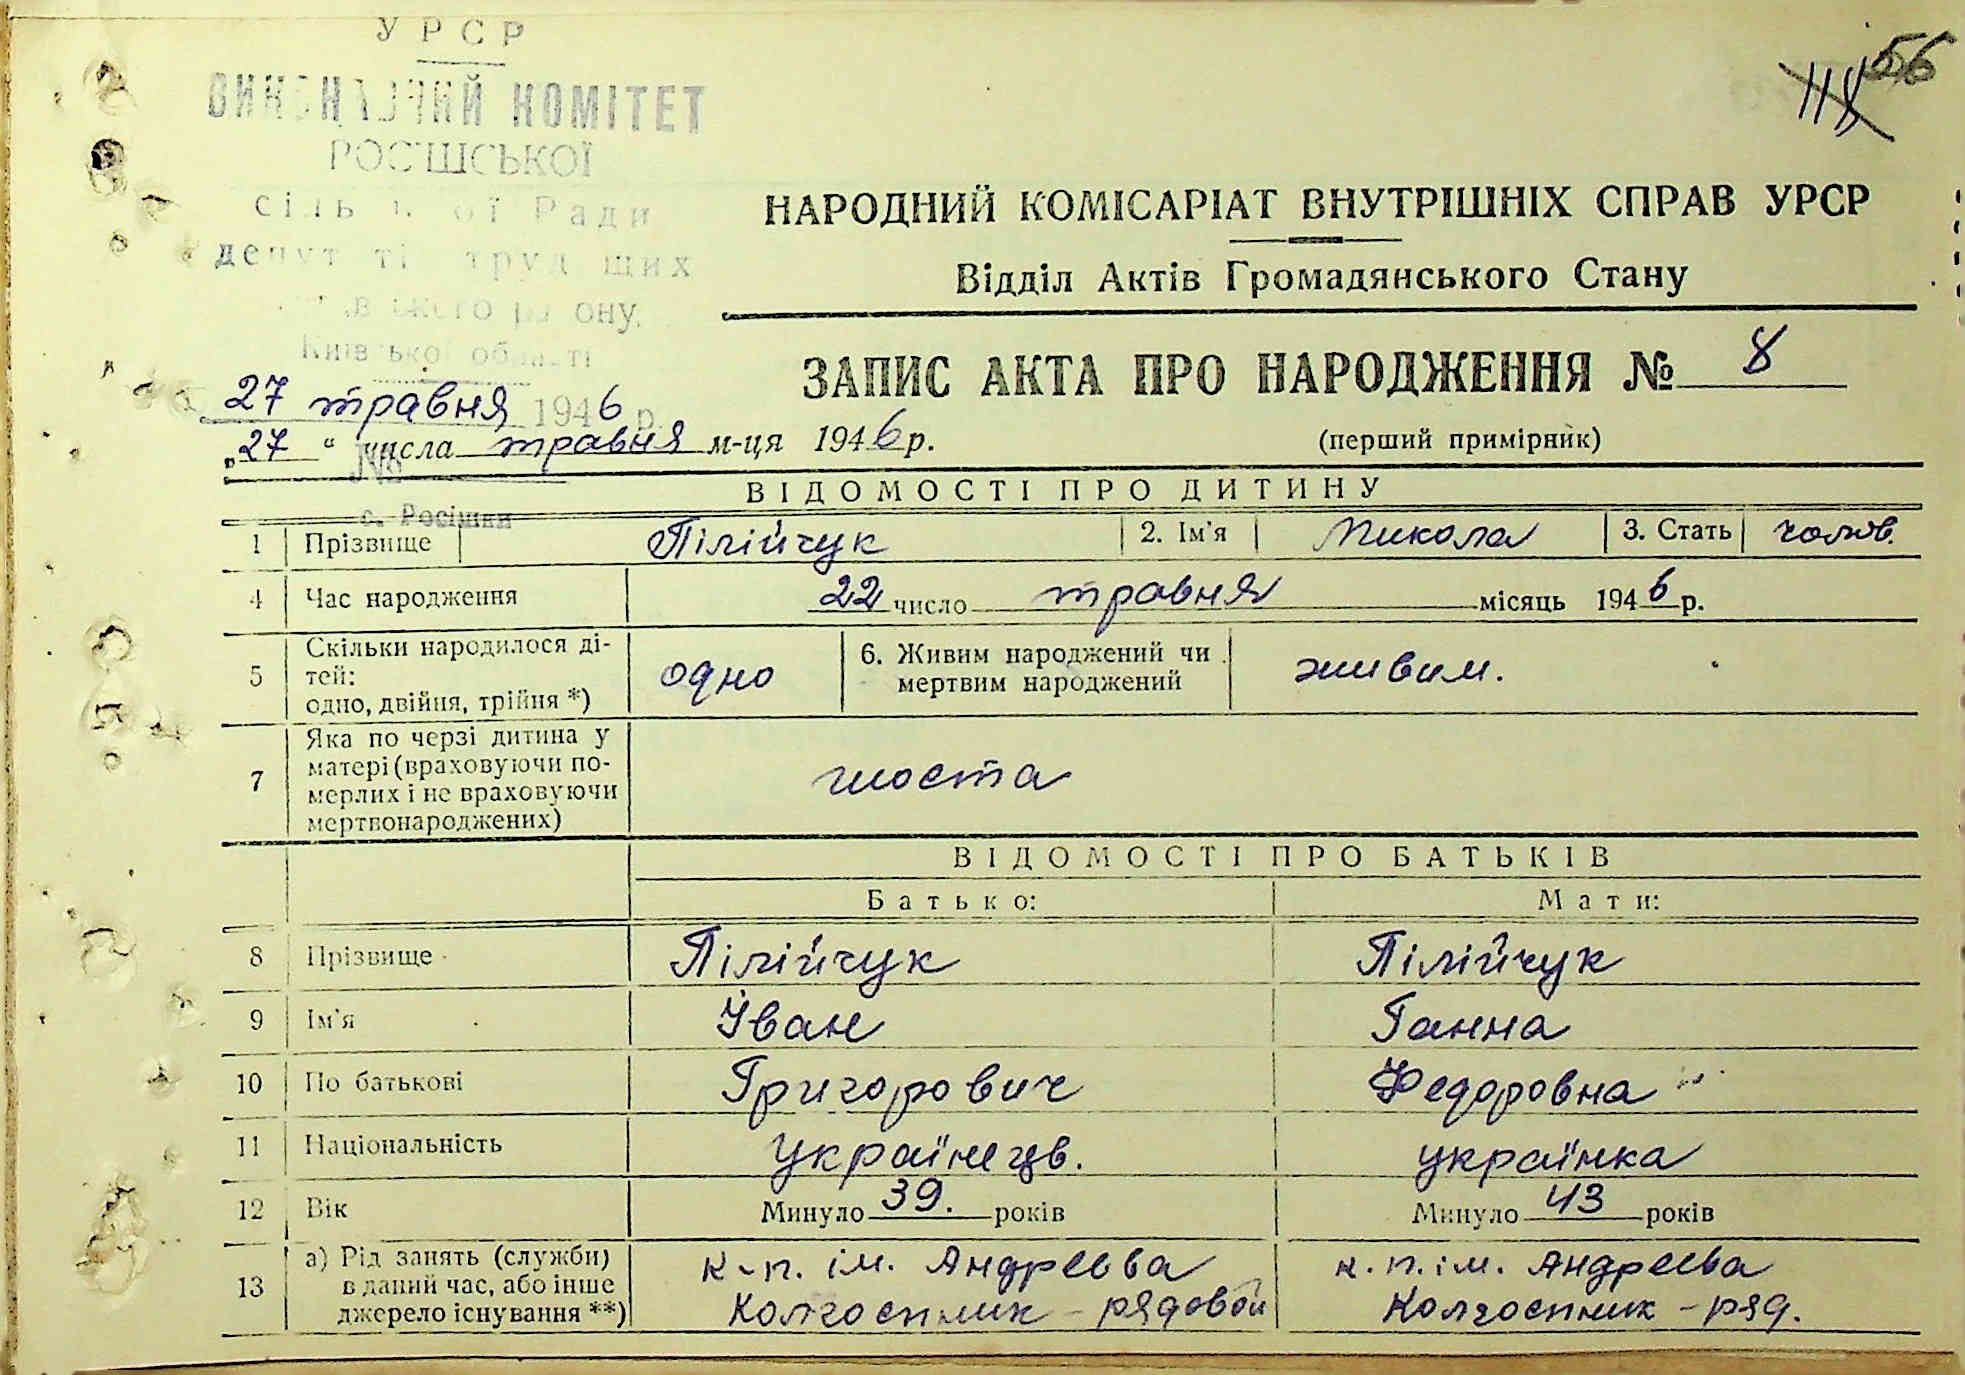 УРСР
56
118
ВИКОНАВЧИЙ КОМІТЕТ
РОСІШСЬКОЇ
сільської Ради
депутатів трудящих
району,
Київської області
НАРОДНИЙ КОМІСАРІАТ ВНУТРІШНІХ СПРАВ УРСР
Відділ Актів Громадянського Стану
ЗАПИС АКТА ПРО НАРОДЖЕННЯ № 8
27 травня 1946 р.
„27“ числа травня м-ця 1946 р.
(перший примірник)
№
с. Росішки
ВІДОМОСТІ ПРО ДИТИНУ
1 Прізвище Пілійчук 2. Ім'я Микола 3. Стать чолов.
4 Час народження 22 число травня місяць 1946 р.
5 Скільки народилося ді-
тей:
одно, двійня, трійня *) одно
6. Живим народжений чи
мертвим народжений живим.
7 Яка по черзі дитина у
матері (враховуючи по-
мерлих і не враховуючи
мертвонароджених) шоста
ВІДОМОСТІ ПРО БАТЬКІВ
Батько: Мати:
8 Прізвище Пілійчук Пілійчук
9 Ім'я Іван Ганна
10 По батькові Григорович Федоровна
11 Національність Українецв. українка
12 Вік Минуло 39. років Минуло 43 років
13 а) Рід занять (служби)
в даний час, або інше
джерело існування **)
к-п. ім. Андреєва к.п. ім. Андреєва
Колгоспник - рядовой Колгоспник - ряд.